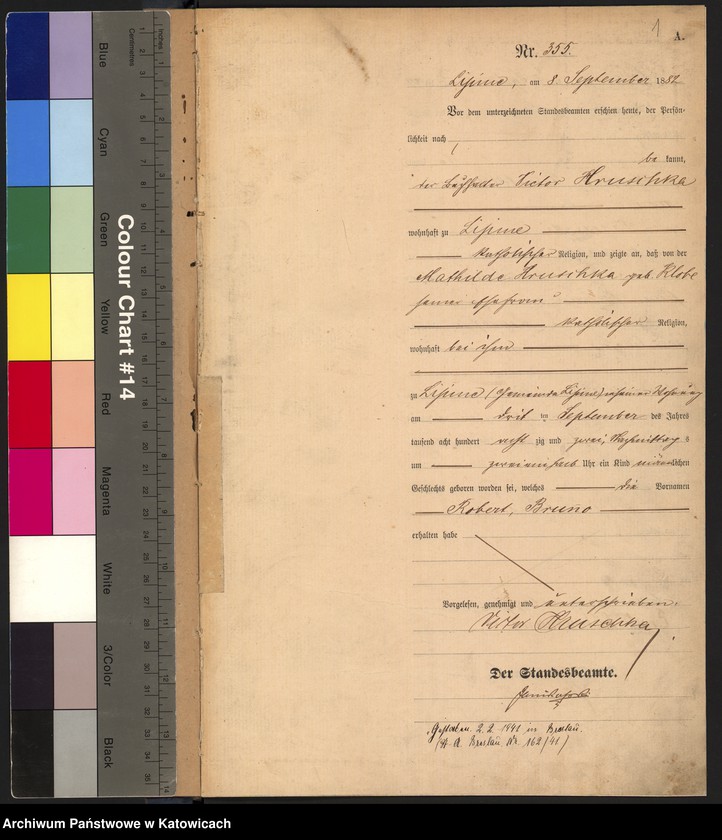 1
A.
Nr. 355.
Lipine, am 8. September 1882
Vor dem unterzeichneten Standesbeamten erschien heute, der Persön-
lichkeit nach
be kannt,
der Buchhalter Victor Hruschka
wohnhaft zu Lipine
katholischer Religion, und zeigte an, daß von der
Mathilde Hruschka geb. Klobe
seiner Ehefrau
katholischer Religion,
wohnhaft bei ihm
zu Lipine (Gemeinde Lipine) in seiner Wohnung
am dritten September des Jahres
tausend acht hundert acht zig und zwei, Nachmittags
um zweieinhalb Uhr ein Kind männlichen
Geschlechts geboren worden sei, welches die Vornamen
Robert, Bruno
erhalten habe
Vorgelesen, genehmigt und unterschrieben.
Victor Hruschka
Der Standesbeamte.
Gestorben 2.2.1941 in Breslau.
(St. A. Breslau Nr. 162/41)
Colour Chart #14
Blue
Cyan
Green
Yellow
Red
Magenta
White
3/Color
Black
Centimetres
Inches
Archiwum Państwowe w Katowicach